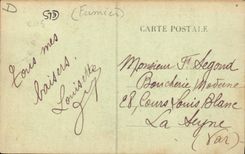 D
573
(Fumier)
CARTE POSTALE
Tous mes
baisers.
Louisette
Monsieur Fs Segond
Boucherie Moderne
28, Cours Louis Blanc
La Seyne
(Var)